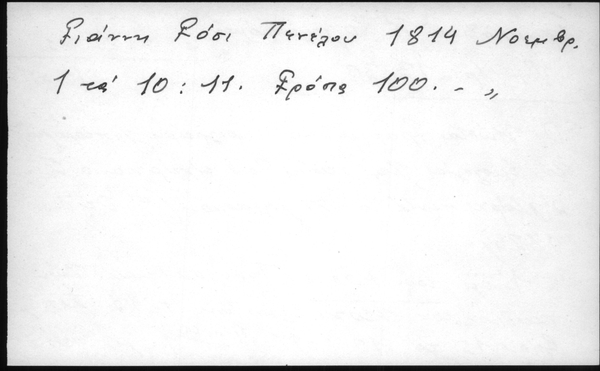 Γιάννη Γόσι Πενέλου 1814 Νοεμβρ.
1 τά 10 : 11. Γρόσα 100. - "